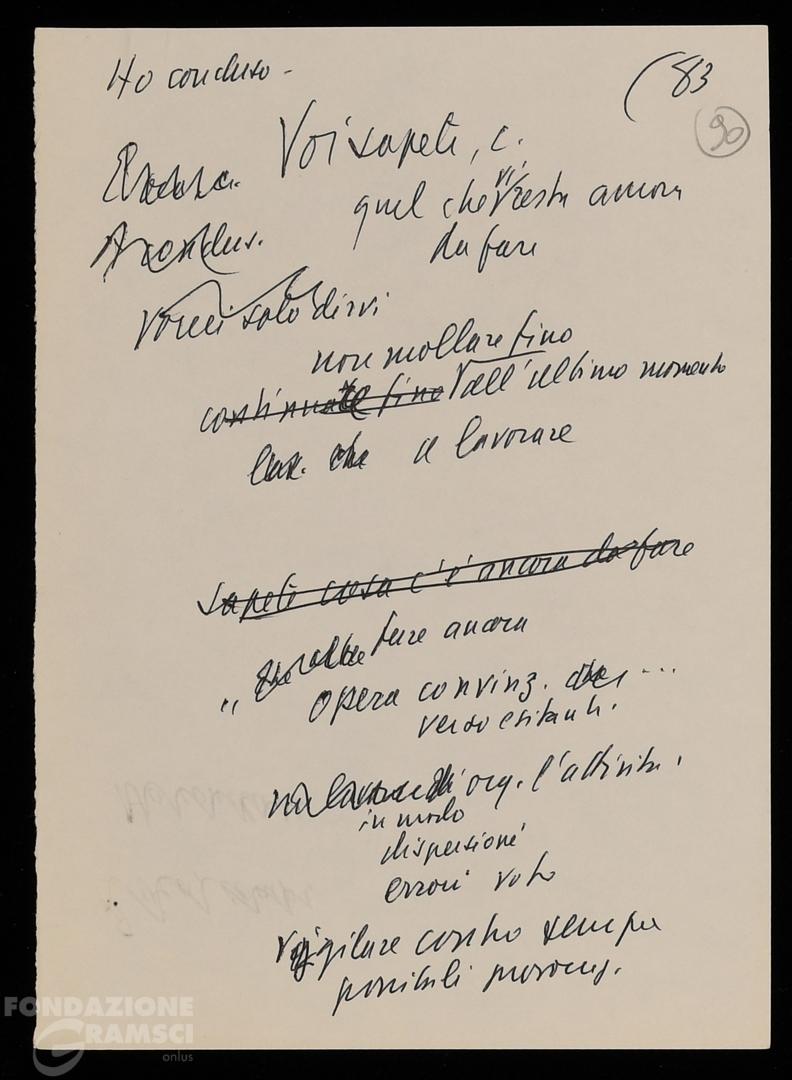 Ho concluso -
(83
90
Voi sapete, c.
quel che vi resta ancora
da fare
Vorrei solo dirvi
non mollare fino
continuate fino all'ultimo momento
a lavorare
Sapete cosa c'è ancora da fare
" fare ancora
opera convinz. ...
verso esitanti.
org. l'attività.
in modo
dispersioni
errori voto
Vigilare contro sempre
possibili provoc.
FONDAZIONE
GRAMSCI
onlus